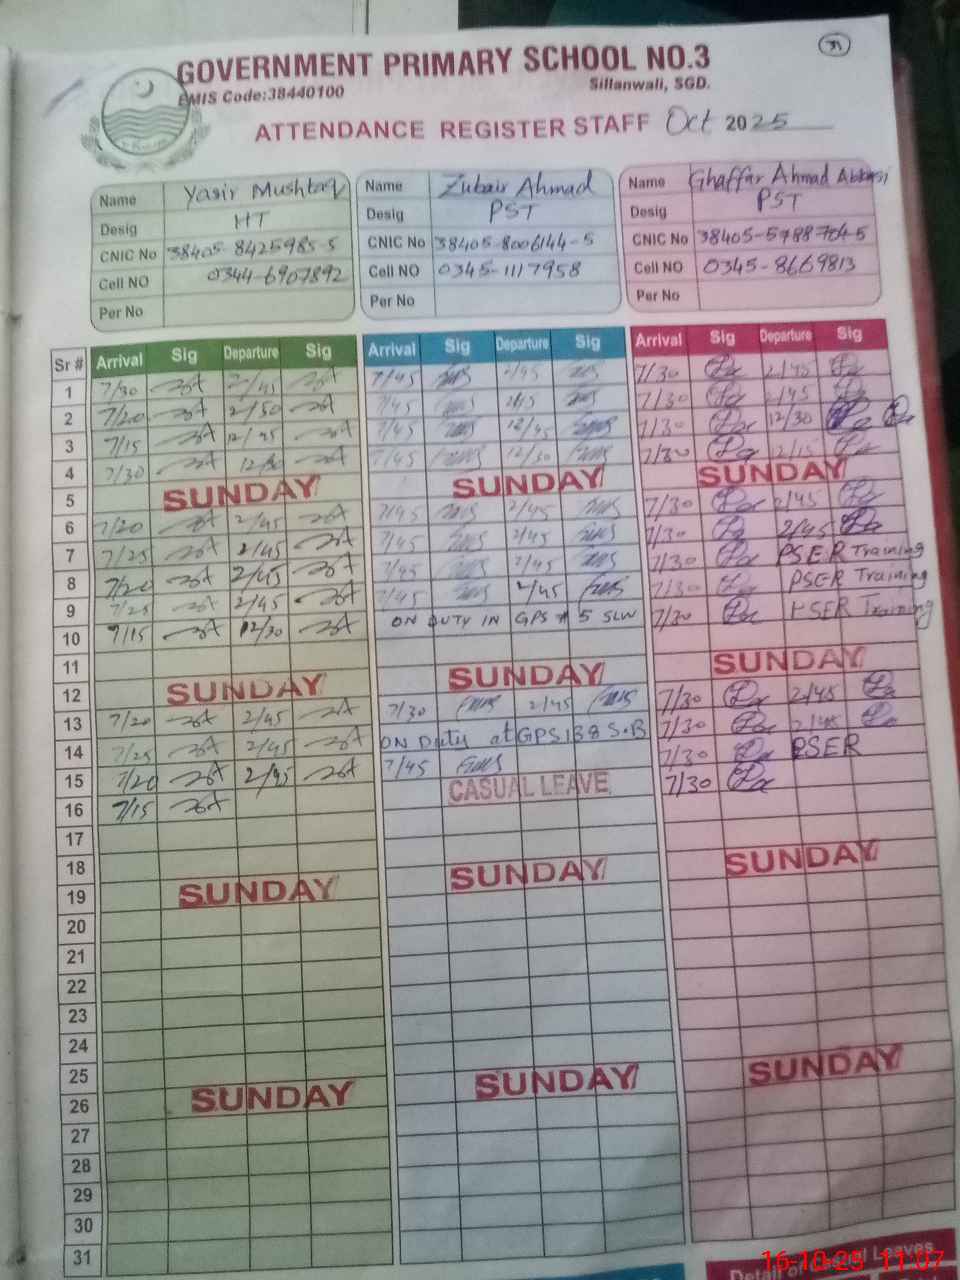 31
GOVERNMENT PRIMARY SCHOOL NO.3
EMIS Code:38440100 Sillanwali, SGD.
ATTENDANCE REGISTER STAFF Oct 2025
Name Yasir Mushtaq Name Zubair Ahmad Name Ghaffar Ahmad Abbasi
Desig HT Desig PST Desig PST
CNIC No 38405-8425985-5 CNIC No 38405-8006144-5 CNIC No 38405-5788704-5
Cell NO 0344-6907892 Cell NO 0345-1117958 Cell NO 0345-8669813
Per No Per No Per No
Sr # Arrival Sig Departure Sig Arrival Sig Departure Sig Arrival Sig Departure Sig
1 7/30 2/45 7/45 2/45 7/30 2/45
2 7/20 2/50 7/45 2/45 7/30 2/45
3 7/15 12/45 7/45 12/45 7/30 12/30
4 7/30 12/30 7/45 12/30 7/30 12/15
5 SUNDAY SUNDAY SUNDAY
6 7/20 2/45 7/45 2/45 7/30 2/45
7 7/25 2/45 7/45 2/45 7/30 2/45
8 7/20 2/45 7/45 2/45 7/30 PSER Training
9 7/25 2/45 7/45 2/45 7/30 PSER Training
10 7/15 12/30 ON DUTY IN GPS # 5 SLW 7/30 PSER Training
11
12 SUNDAY SUNDAY SUNDAY
13 7/20 2/45 7/30 2/45 7/30 2/45
14 7/25 2/45 ON Duty at GPS 138 S.B 7/30 2/45
15 7/20 2/45 7/45 7/30 PSER
16 7/15 CASUAL LEAVE 7/30
17
18
19 SUNDAY SUNDAY SUNDAY
20
21
22
23
24
25
26 SUNDAY SUNDAY SUNDAY
27
28
29
30
31
Detail of Casual Leaves
16-10-25 11:07